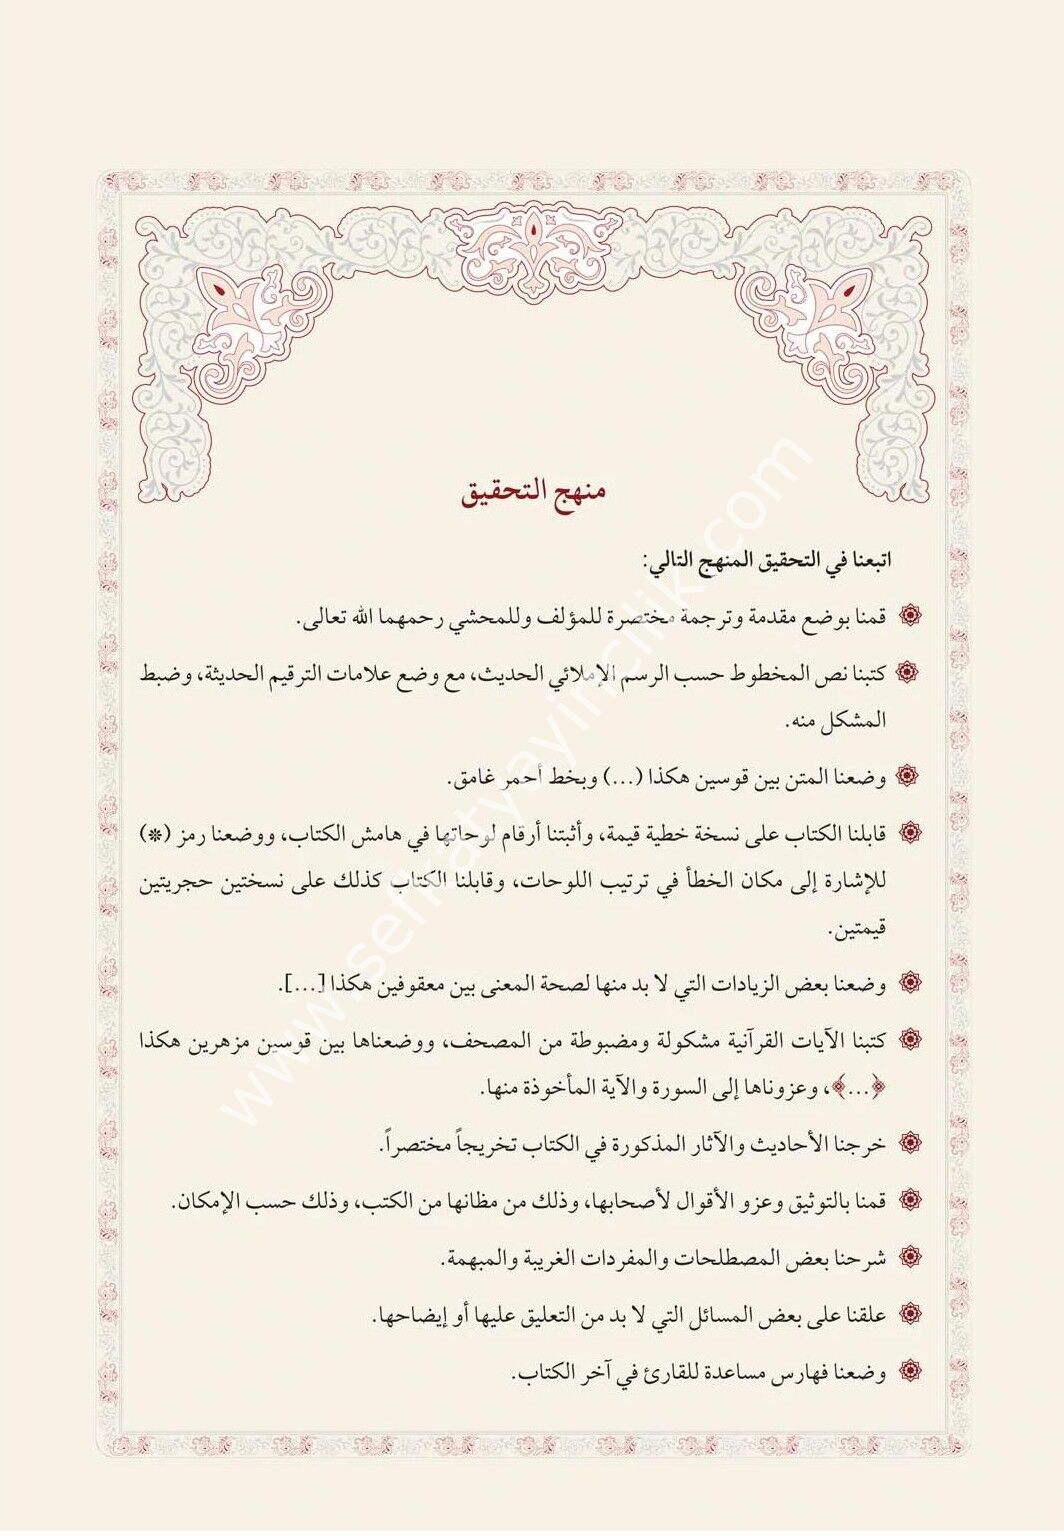 منهج التحقيق
اتبعنا في التحقيق المنهج التالي:
قمنا بوضع مقدمة وترجمة مختصرة للمؤلف وللمحشي رحمهما الله تعالى.
كتبنا نص المخطوط حسب الرسم الإملائي الحديث، مع وضع علامات الترقيم الحديثة، وضبط
المشكل منه.
وضعنا المتن بين قوسين هكذا (...) وبخط أحمر غامق.
قابلنا الكتاب على نسخة خطية قيمة، وأثبتنا أرقام لوحاتها في هامش الكتاب، ووضعنا رمز (*)
للإشارة إلى مكان الخطأ في ترتيب اللوحات، وقابلنا الكتاب كذلك على نسختين حجريتين
قيمتين.
وضعنا بعض الزيادات التي لا بد منها لصحة المعنى بين معقوفين هكذا [...].
كتبنا الآيات القرآنية مشكولة ومضبوطة من المصحف، ووضعناها بين قوسين مزهرين هكذا
﴿...﴾، وعزوناها إلى السورة والآية المأخوذة منها.
خرجنا الأحاديث والآثار المذكورة في الكتاب تخريجاً مختصراً.
قمنا بالتوثيق وعزو الأقوال لأصحابها، وذلك من مظانها من الكتب، وذلك حسب الإمكان.
شرحنا بعض المصطلحات والمفردات الغريبة والمبهمة.
علقنا على بعض المسائل التي لا بد من التعليق عليها أو إيضاحها.
وضعنا فهارس مساعدة للقارئ في آخر الكتاب.